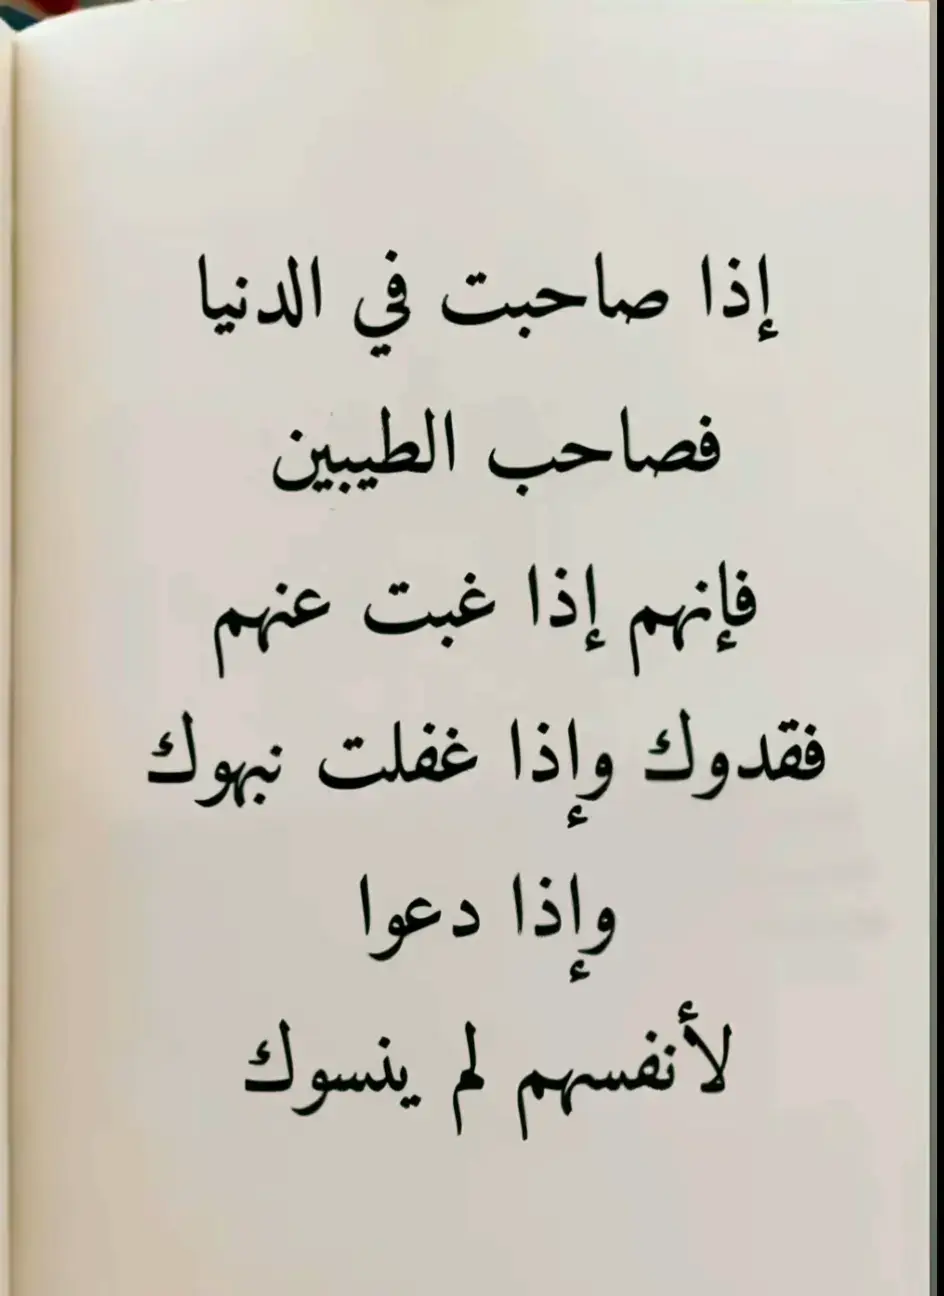 إذا صاحبت في الدنيا
فصاحب الطيبين
فإنهم إذا غبت عنهم
فقدوك وإذا غفلت نبهوك
وإذا دعوا
لأنفسهم لم ينسوك